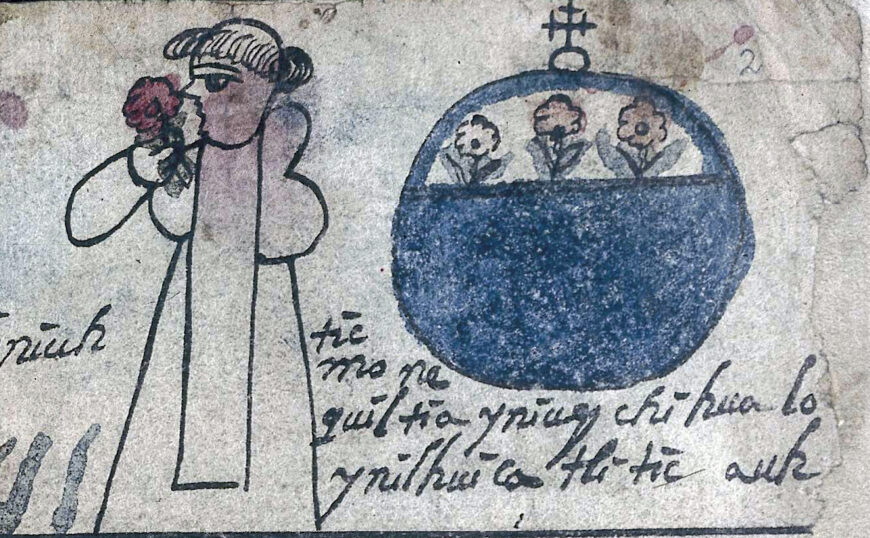 2
niuh
tic
mo ne
quiltia yniuh chihua lo
ynilhuicatlitic auh